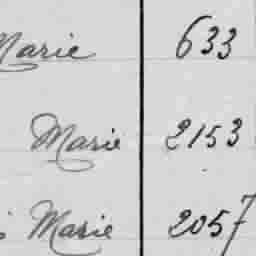 Marie 633
Marie 2153
Marie 2057